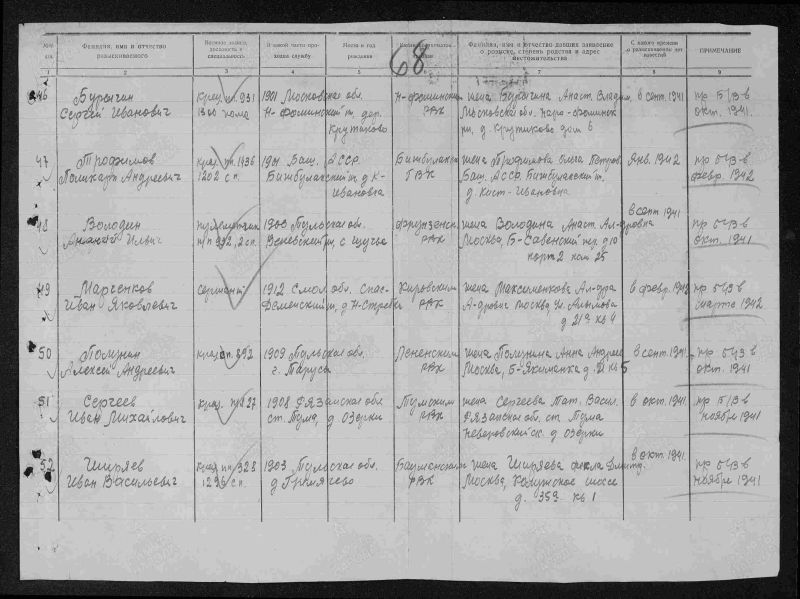 Фамилия, имя и отчество разыскиваемого
Военное звание, должность и специальность
В какой части проходил службу
Место и год рождения
Фамилия, имя и отчество давших заявление о розыске, степень родства и адрес местожительства
С какого времени
ПРИМЕЧАНИЕ
1 2 3 4 5 7 8 9
68
46
Сергей Иванович
1300 полк
1901 Московская обл.
Н-Фоминский р. дер.
Крутиково
Н-Фоминским
РВК
жена
Московская обл. Наро-Фоминск
д. Крутиково дом 6
в сент. 1941
пр б/з-в
окт. 1941
47 Трофимов
Поликарп Андреевич
крас. пп 1436
1202 с.п.
1901 Баш. АССР
Бижбулакский р. д К-
Ивановка
Бижбулакским
РВК
жена Трофимова Ольга Петров.
Баш. АССР. Бижбулакский р.
д. Кост-Ивановка
Янв. 1942
пр б/з-в
февр. 1942
48 Володин
Ильич
пулеметчик
1900 Тульская обл.
Веневский р, с Щучье
Фрунзенск.
РВК
жена Володина Анаст. Ал-дровна
Москва, Б-Саввинский пер. д 10
корп 2 кв 25
в сент 1941
пр б/з-в
окт. 1941
49 Марченков
Иван Яковлевич
сержант
1912 Смол. обл. Спас-
Деменский р, д Н-Стребки
Кировским
РВК
жена Максименкова Ал-дра
А-дровна Москва,
д 21а кв 4
в февр. 1942
пр б/з в
марте 1942
50 Полунин
Алексей Андреевич
крас. пп. 692
1909 Тульская обл.
г. Таруса
Ленинским
РВК
жена Полунина Анна Андреев
Москва, Б-Якиманка д. 21 кв 5
в сент. 1941
пр б/з в
окт. 1941
51 Сергеев
Иван Михайлович
крас.
1908 Рязанская обл
ст. Тума, д Озерки
Тумским
РВК
жена Сергеева Тат. Васил.
Рязанская обл. ст Тума
Неверовский с/с д Озерки
в окт. 1941
пр б/з-в
ноябре 1941
52 Ширяев
Иван Васильевич
крас пп 328
1296 с п.
1903 Тульская обл.
д Гремячево
Бауманским
РВК
жена Ширяева Фекла Дмитр.
Москва, Калужское шоссе
д. 35а кв 1
в окт. 1941
пр б/з-в
ноябре 1941